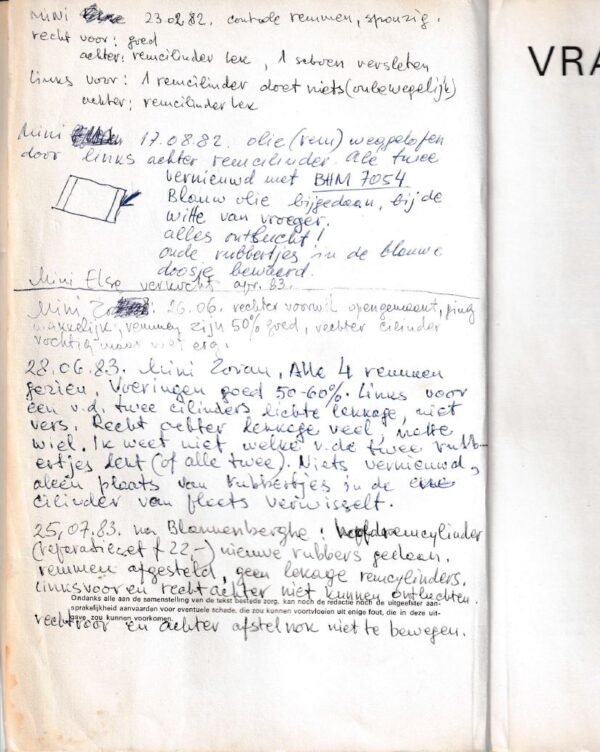 mini 23.02.82. controle remmen, sponzig.
recht voor: goed
achter: remcilinder lek, 1 schoen versleten
links voor: 1 remcilinder doet niets (onbewegelijk)
achter: remcilinder lek
Mini 17.08.82. olie (rem) weggelofen
door links achter remcilinder. Alle twee
vernieuwd met BHM 7054.
Blauw olie bijgedaan, bij de
witte van vroeger.
alles ontlucht!
oude rubbertjes in de blauwe
doosje bewaard.
Mini Else verkocht apr. 83.
Mini 26.06. rechter voorwiel opengemaakt, ging
makkelijk, remmen zijn 50% goed, rechter cilinder
vochtig maar niet erg.
28.06.83. Mini Zoran, Alle 4 remmen
gezien, Voeringen goed 50-60%. Links voor
een v.d. twee cilinders lichte lekkage, niet
vers. Recht achter lekkage veel, natte
wiel. Ik weet niet welke v.de twee rubb-
ertjes lekt (of alle twee). Niets vernieuwd,
aleen plaats van rubbertjes in de
cilinder van plaats verwisselt.
25,07.83. na Blannenberghe: hoofdremcylinder
(reparatieset f 22,-) nieuwe rubbers gedaan.
remmen afgesteld, geen lekage remcylinders.
linksvoor en recht achter niet kunnen ontluchten.
Ondanks alle aan de samenstelling van de tekst bestede zorg, kan noch de redactie noch de uitgeefster aan-
sprakelijkheid aanvaarden voor eventuele schade, die zou kunnen voortvloeien uit enige fout, die in deze uit-
gave zou kunnen voorkomen.
rechtvoor en achter afstelnok niet te bewegen.
VRA